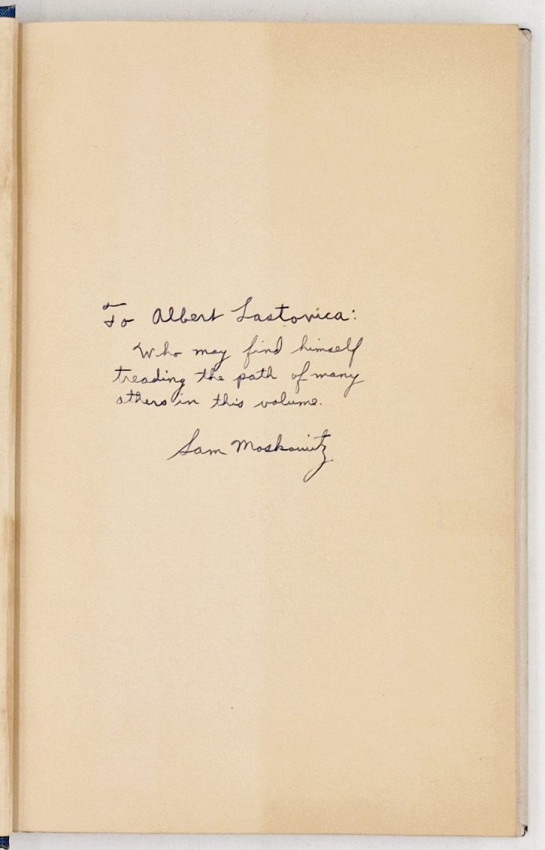 To Albert Lastovica:
Who may find himself
treading the path of many
others in this volume.
Sam Moskowitz